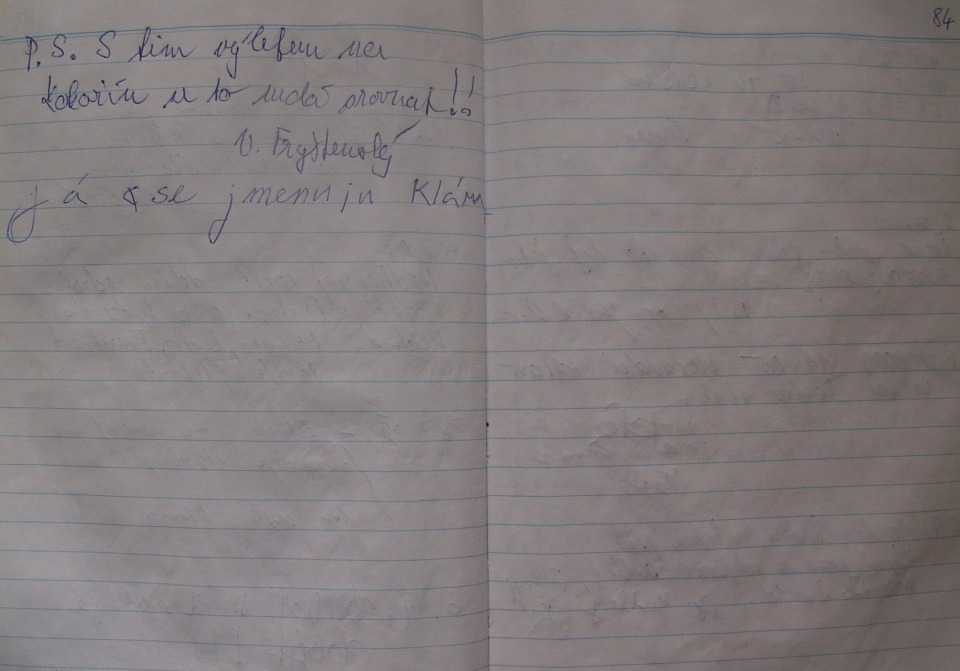 P. S. S tím výletem na
Kokořín se to nedá srovnat!!
V. Fryštenský
Já se jmenuju Klára
84